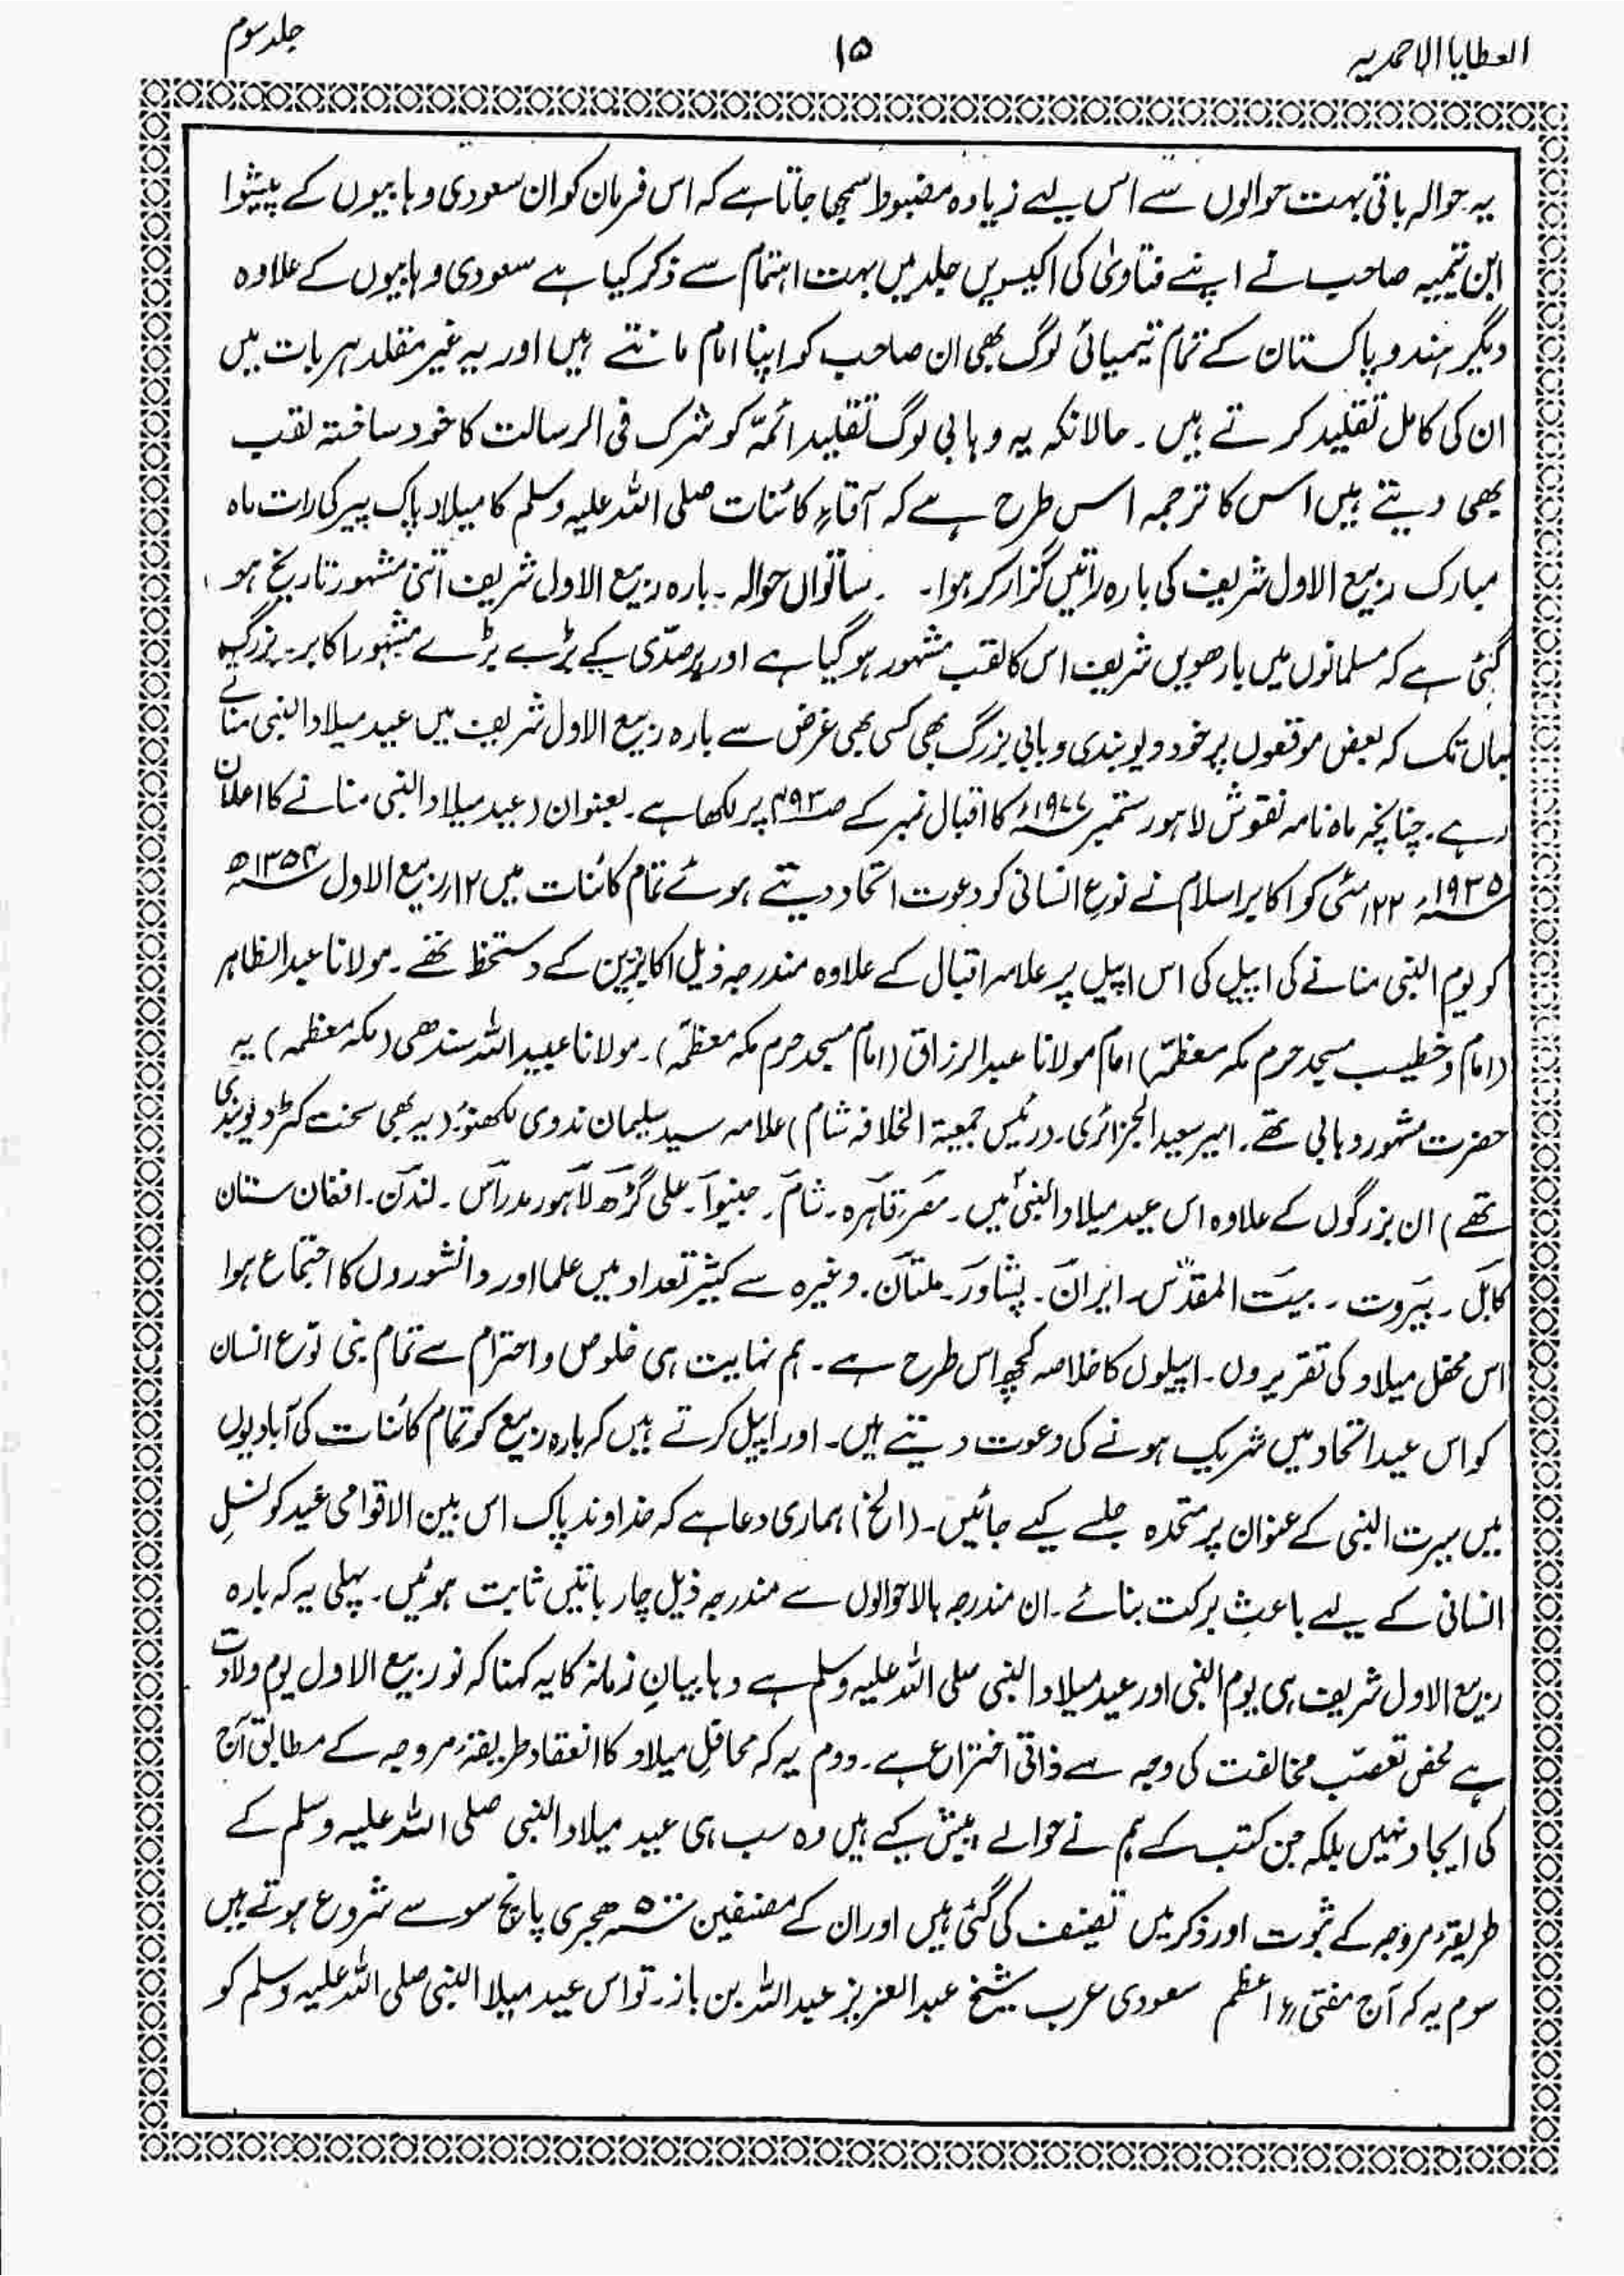 العطایا الاحمدیہ
۱۵
جلد سوم
یہ حوالہ باقی بہت حوالوں سے اس لیے زیادہ مضبوط سمجھا جاتا ہے کہ اس فرمان کو ان سعودی وہابیوں کے پیشوا
ابن تیمیہ صاحب نے اپنے فتاویٰ کی اکیسویں جلد میں بہت اہتمام سے ذکر کیا ہے سعودی وہابیوں کے علاوہ
دیگر ہند و پاکستان کے تمام تیمیائی لوگ بھی ان صاحب کو اپنا امام مانتے ہیں اور یہ غیر مقلد ہر بات میں
ان کی کامل تقلید کرتے ہیں۔ حالانکہ یہ وہابی لوگ تقلید ائمہّ کو شرک فی الرسالت کا خود ساختہ لقب
بھی دیتے ہیں اس کا ترجمہ اس طرح ہے کہ آقاءِ کائنات صلی اللہ علیہ وسلم کا میلاد پاک پیر کی رات ماہ
مبارک ربیع الاول شریف کی بارہ راتیں گزار کر ہوا۔ ساتواں حوالہ۔ بارہ ربیع الاول شریف اتنی مشہور تاریخ ہو
گئی ہے کہ مسلمانوں میں بارھویں شریف اس کا لقب مشہور ہو گیا ہے اور ہر صدّی کے بڑے بڑے مشہور اکابر۔ بزرگ
یہاں تک کہ بعض موقعوں پر خود دیوبندی وہابی بزرگ بھی کسی بھی غرض سے بارہ ربیع الاول شریف میں عید میلاد النبی مناتے
رہے۔ چنانچہ ماہ نامہ نقوش لاہور ستمبر ۱۹۷۷ء کا اقبال نمبر کے صـ۴۹۳ پر لکھا ہے۔ بعنوان (عید میلاد النبی منانے کا اعلان
۱۹۳۵ء ۲۲ مئی کو اکابر اسلام نے نوع انسانی کو دعوت اتحاد دیتے ہوئے تمام کائنات میں ۱۲ ربیع الاول ۱۳۵۴ھ
کو یوم النبی منانے کی اپیل کی اس اپیل پر علامہ اقبال کے علاوہ مندرجہ ذیل اکابرین کے دستخط تھے۔ مولانا عبدالظاہر
(امام و خطیب مسجد حرم مکہ معظمّہ) امام مولانا عبدالرزاق (امام مسجد حرم مکہ معظمّہ)۔ مولانا عبید اللہ سندھی (مکہ معظمہ) یہ
حضرت مشہور وہابی تھے۔ امیر سعید الجزائری۔ (رئیس جمعیۃ الخلافہ شام) علامہ سید سلیمان ندوی لکھنوٗ (یہ بھی سخت کٹر دیوبندی
تھے) ان بزرگوں کے علاوہ اس عید میلاد النبی میں۔ مصر۔ قاہرہ۔ شام۔ جنیوا۔ علی گڑھ لاہور مدراس۔ لندن۔ افغانستان
کابل۔ بیروت۔ بیت المقدّس۔ ایران۔ پشاور۔ ملتان۔ وغیرہ سے کثیر تعداد میں علما اور دانشوروں کا اجتماع ہوا
اس محفل میلاد کی تقریروں۔ اپیلوں کا خلاصہ کچھ اس طرح ہے۔ ہم نہایت ہی خلوص و احترام سے تمام بنی نوع انسان
کو اس عید اتحاد میں شریک ہونے کی دعوت دیتے ہیں۔ اور اپیل کرتے ہیں کہ بارہ ربیع کو تمام کائنات کی آبادیوں
میں سیرت النبی کے عنوان پر متحدہ جلسے کیے جائیں۔ (الخ) ہماری دعا ہے کہ خداوند پاک اس بین الاقوامی عید کو نسلِ
انسانی کے لیے باعثِ برکت بنائے۔ ان مندرجہ بالا حوالوں سے مندرجہ ذیل چار باتیں ثابت ہوئیں۔ پہلی یہ کہ بارہ
ربیع الاول شریف ہی یوم النبی اور عید میلاد النبی صلی اللہ علیہ وسلم ہے وہابیانِ زمانہ کا یہ کہنا کہ نو ربیع الاول یوم ولادت
ہے محض تعصّب مخالفت کی وجہ سے ذاتی اختراع ہے۔ دوم یہ کہ محافلِ میلاد کا انعقاد طریقۂ مروجہ کے مطابق آج
کی ایجاد نہیں بلکہ جن کتب کے ہم نے حوالے پیش کیے ہیں وہ سب ہی عید میلاد النبی صلی اللہ علیہ وسلم کے
طریقۂ مروجہ کے ثبوت اور ذکر میں تصنیف کی گئی ہیں اور ان کے مصنفین ۵۰۰ھ ہجری پانچ سو سے شروع ہوتے ہیں
سوم یہ کہ آج مفتیءِ اعظم سعودی عرب شیخ عبدالعزیز عبداللہ بن باز۔ تو اس عید میلا النبی صلی اللہ علیہ وسلم کو